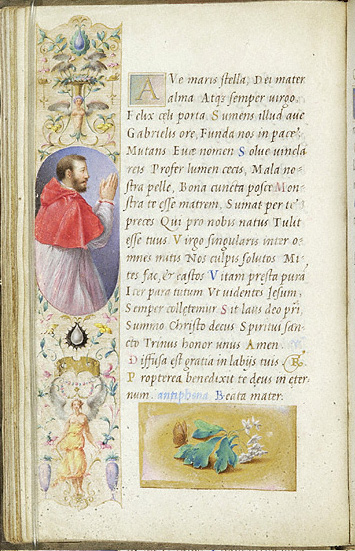 AVe maris ſtella, Dei mater
alma Atqȝ ſemper virgo
Felix celi porta. Sumens illud aue
Gabrielis ore, Funda nos in pace
Mutans Euæ nomen Solue vincla
reis Profer lumen cecis, Mala no-
ſtra pelle, Bona cuncta poſce Mon
ſtra te eſſe matrem, Sumat per te
preces Qui pro nobis natus Tulit
eſſe tuus Virgo ſingularis inter o-
mnes mitis Nos culpis ſolutos Mi
tes fac, & caſtos Vitam preſta purã
Iter para tutum Vt videntes Jeſum,
Semper colletemur Sit laus deo pri,
Summo Chriſto decus Spiritui ſan
cto Trinus honor unus Amen
Diffuſa eſt gratia in labijs tuis R
Propterea benedixit te deus in eter
num. antiphona Beata mater.